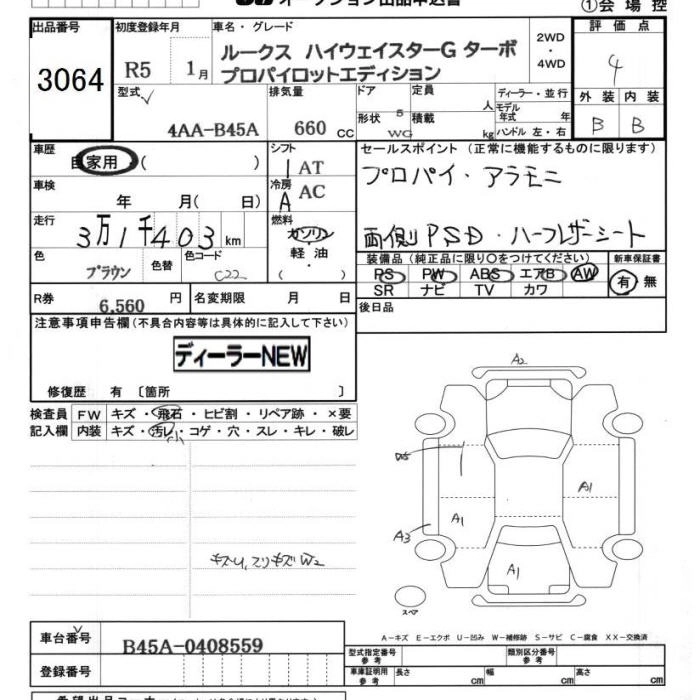 オークション出品申込書
①会場控
出品番号
3064
初度登録年月
R5 1月
車名・グレード
ルークス ハイウェイスターG ターボ
プロパイロットエディション
2WD
・
4WD
評価点
4
外装 内装
B B
型式
4AA-B45A
排気量
660 cc
ドア
5
形状
WG
定員
人
積載
kg
ディーラー・並行
モデル年式 年
ハンドル 左・右
車歴
自家用・( )
シフト
I AT
車検
年 月( 日)
冷房
A AC
走行
3万1千403km
燃料
ガソリン
・
軽油
・
( )
色
ブラウン
色替
色コード
C22
R券
6,560 円
名変期限 月 日
セールスポイント(正常に機能するものに限ります)
プロパイ・アラモニ
両側PSD・ハーフレザーシート
装備品(純正品に限り○をつけてください)
PS PW ABS エアB AW
SR ナビ TV カワ
新車保証書
有・無
後日品
注意事項申告欄(不具合内容等は具体的に記入して下さい)
ディーラーNEW
修復歴 有〔箇所 〕
検査員記入欄
FW キズ・飛石・ヒビ割・リペア跡・×要
内装 キズ・汚レ・コゲ・穴・スレ・キレ・破レ
小
A2
A1
A1
A3
A1
スペア
A-キズ E-エクボ U-凹み W-補修跡 S-サビ C-腐食 XX-交換済
車台番号
B45A-0408559
登録番号
型式指定番号 参考
類別区分番号 参考
車庫証明用 参考
長さ cm
幅 cm
高さ cm